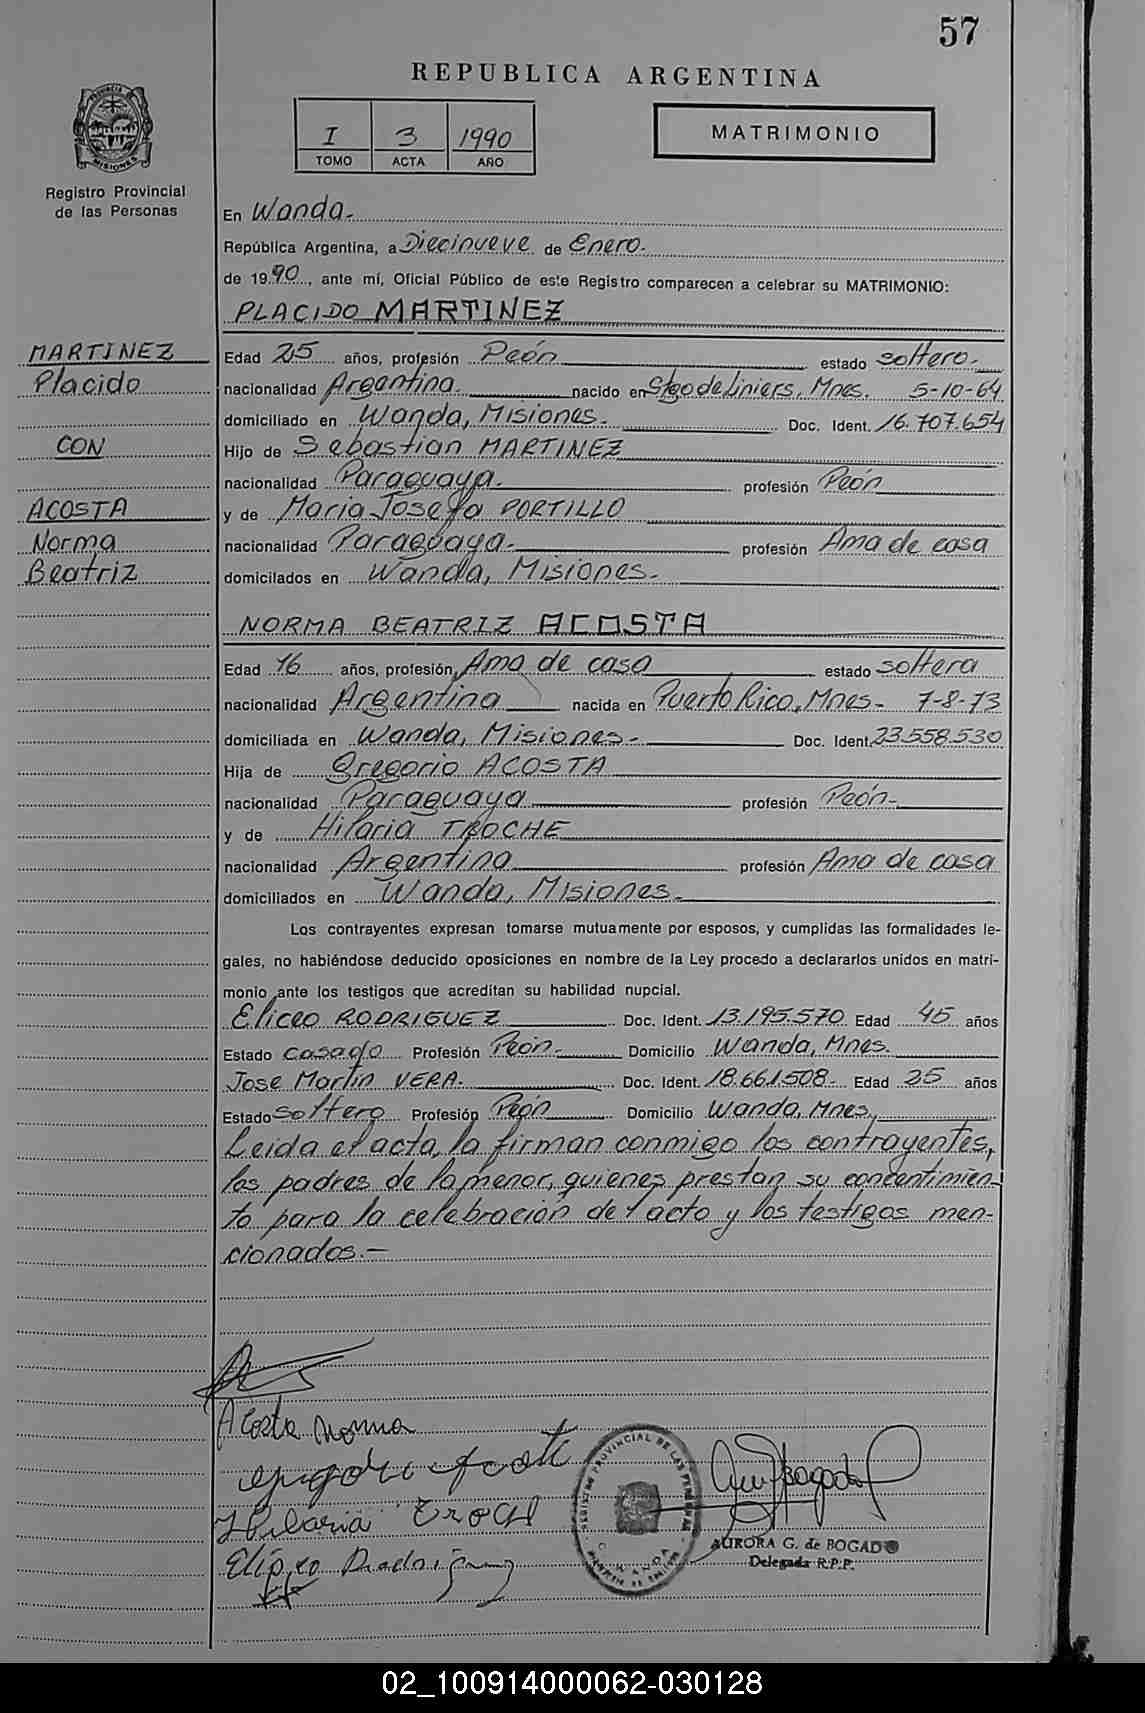 57
REPUBLICA ARGENTINA
I 3 1990
TOMO ACTA AÑO
MATRIMONIO
PROVINCIA
MISIONES
Registro Provincial
de las Personas
En Wanda.
República Argentina, a Diecinueve de Enero.
de 1990, ante mí, Oficial Público de este Registro comparecen a celebrar su MATRIMONIO:
PLACIDO MARTINEZ
MARTINEZ
Placido
CON
ACOSTA
Norma
Beatriz
Edad 25 años, profesión Peón estado soltero.
nacionalidad Argentina. nacido en Stgo de Liniers, Mnes. 5-10-64
domiciliado en Wanda, Misiones. Doc. Ident. 16.707.654
Hijo de Sebastian MARTINEZ
nacionalidad Paraguaya. profesión Peón
y de Maria Josefa PORTILLO
nacionalidad Paraguaya. profesión Ama de casa
domicilados en Wanda, Misiones.
NORMA BEATRIZ ACOSTA
Edad 16 años, profesión Ama de casa estado soltera
nacionalidad Argentina nacida en Puerto Rico, Mnes- 7-8-73
domiciliada en Wanda, Misiones- Doc. Ident. 23.558.530
Hija de Gregorio ACOSTA
nacionalidad Paraguaya profesión Peón-
y de Hilaria TROCHE
nacionalidad Argentina profesión Ama de casa
domiciliados en Wanda, Misiones-
Los contrayentes expresan tomarse mutuamente por esposos, y cumplidas las formalidades le-
gales, no habiéndose deducido oposiciones en nombre de la Ley procedo a declararlos unidos en matri-
monio ante los testigos que acreditan su habilidad nupcial.
Eliceo RODRIGUEZ Doc. Ident. 13.195.570 Edad 45 años
Estado casado Profesión Peón- Domicilio Wanda, Mnes.
Jose Martin VERA. Doc. Ident. 18.661.508- Edad 25 años
Estado soltero Profesión Peón Domicilio Wanda, Mnes,
Leida el acta, la firman conmigo los contrayentes,
los padres de la menor, quienes prestan su concentimien-
to para la celebración del acto y los testigos men-
cionados.-
Acosta Norma
Hilaria Troche
REGISTRO PROVINCIAL DE LAS PERSONAS
WANDA
AURORA G. de BOGADO
Delegada R.P.P.
02_100914000062-030128